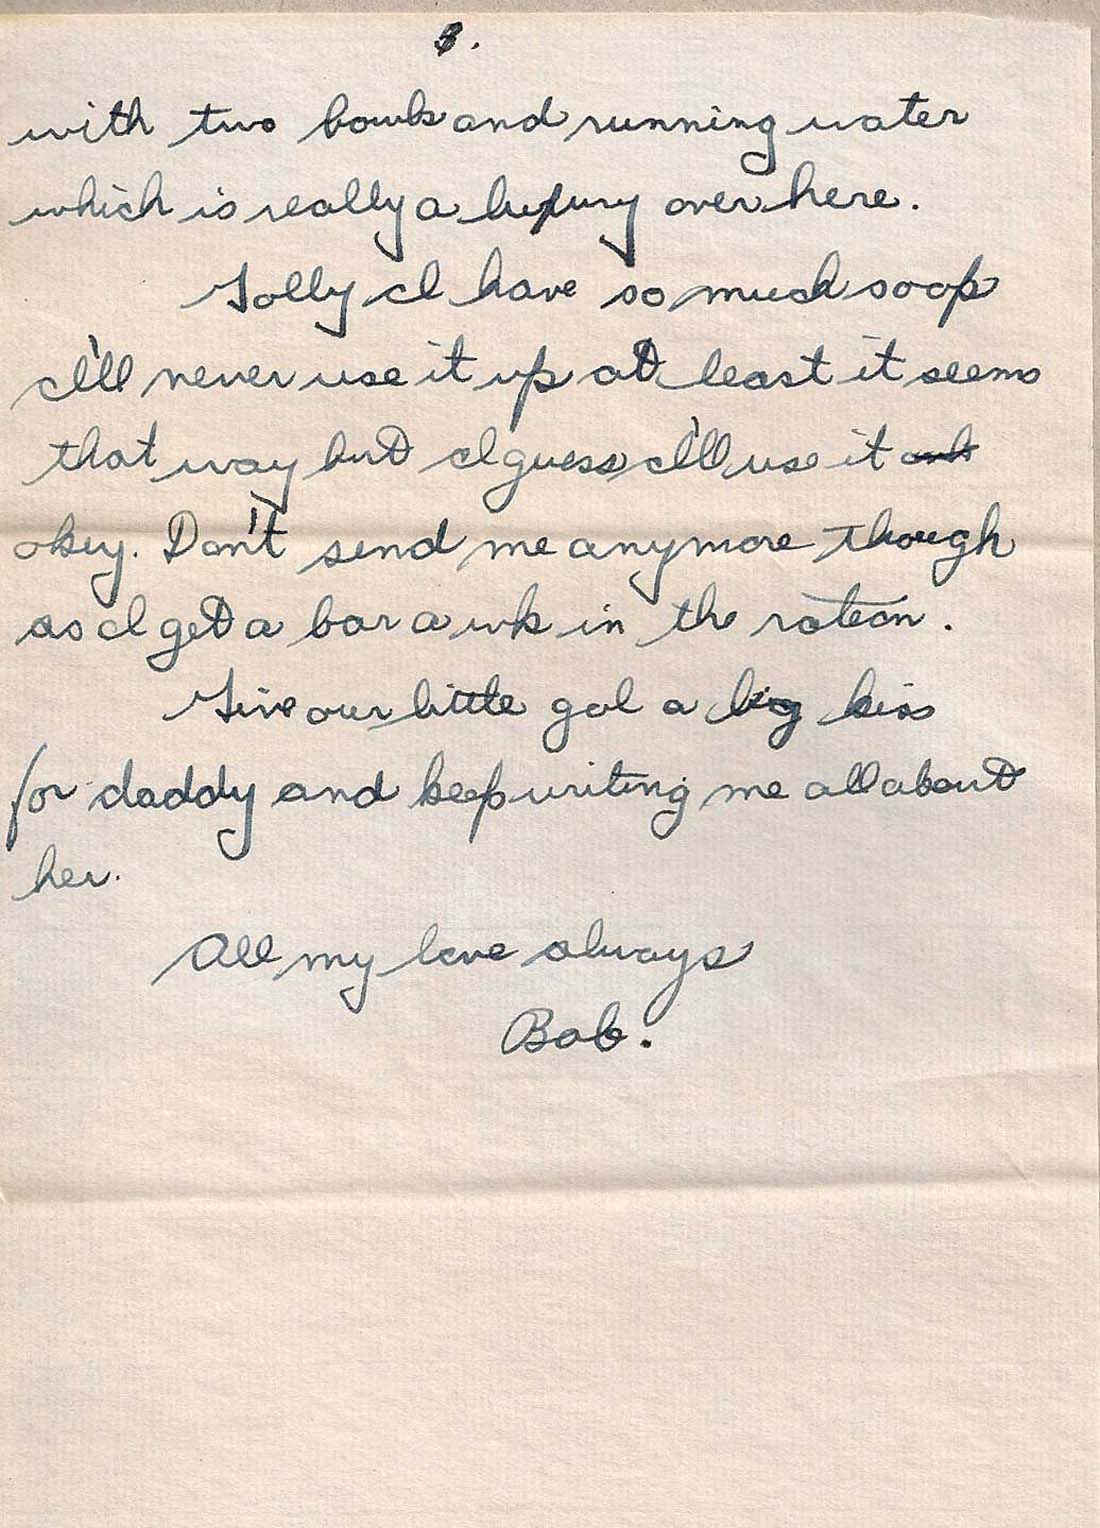 8.
with two bowls and running water
which is really a luxury over here.
Golly I have so much soap
I'll never use it up at least it seems
that way but I guess I'll use it
okey. Don't send me anymore though
as I get a bar a wk in the ration.
Give our little gal a big kiss
for daddy and keep writing me all about
her.
All my love always
Bob.